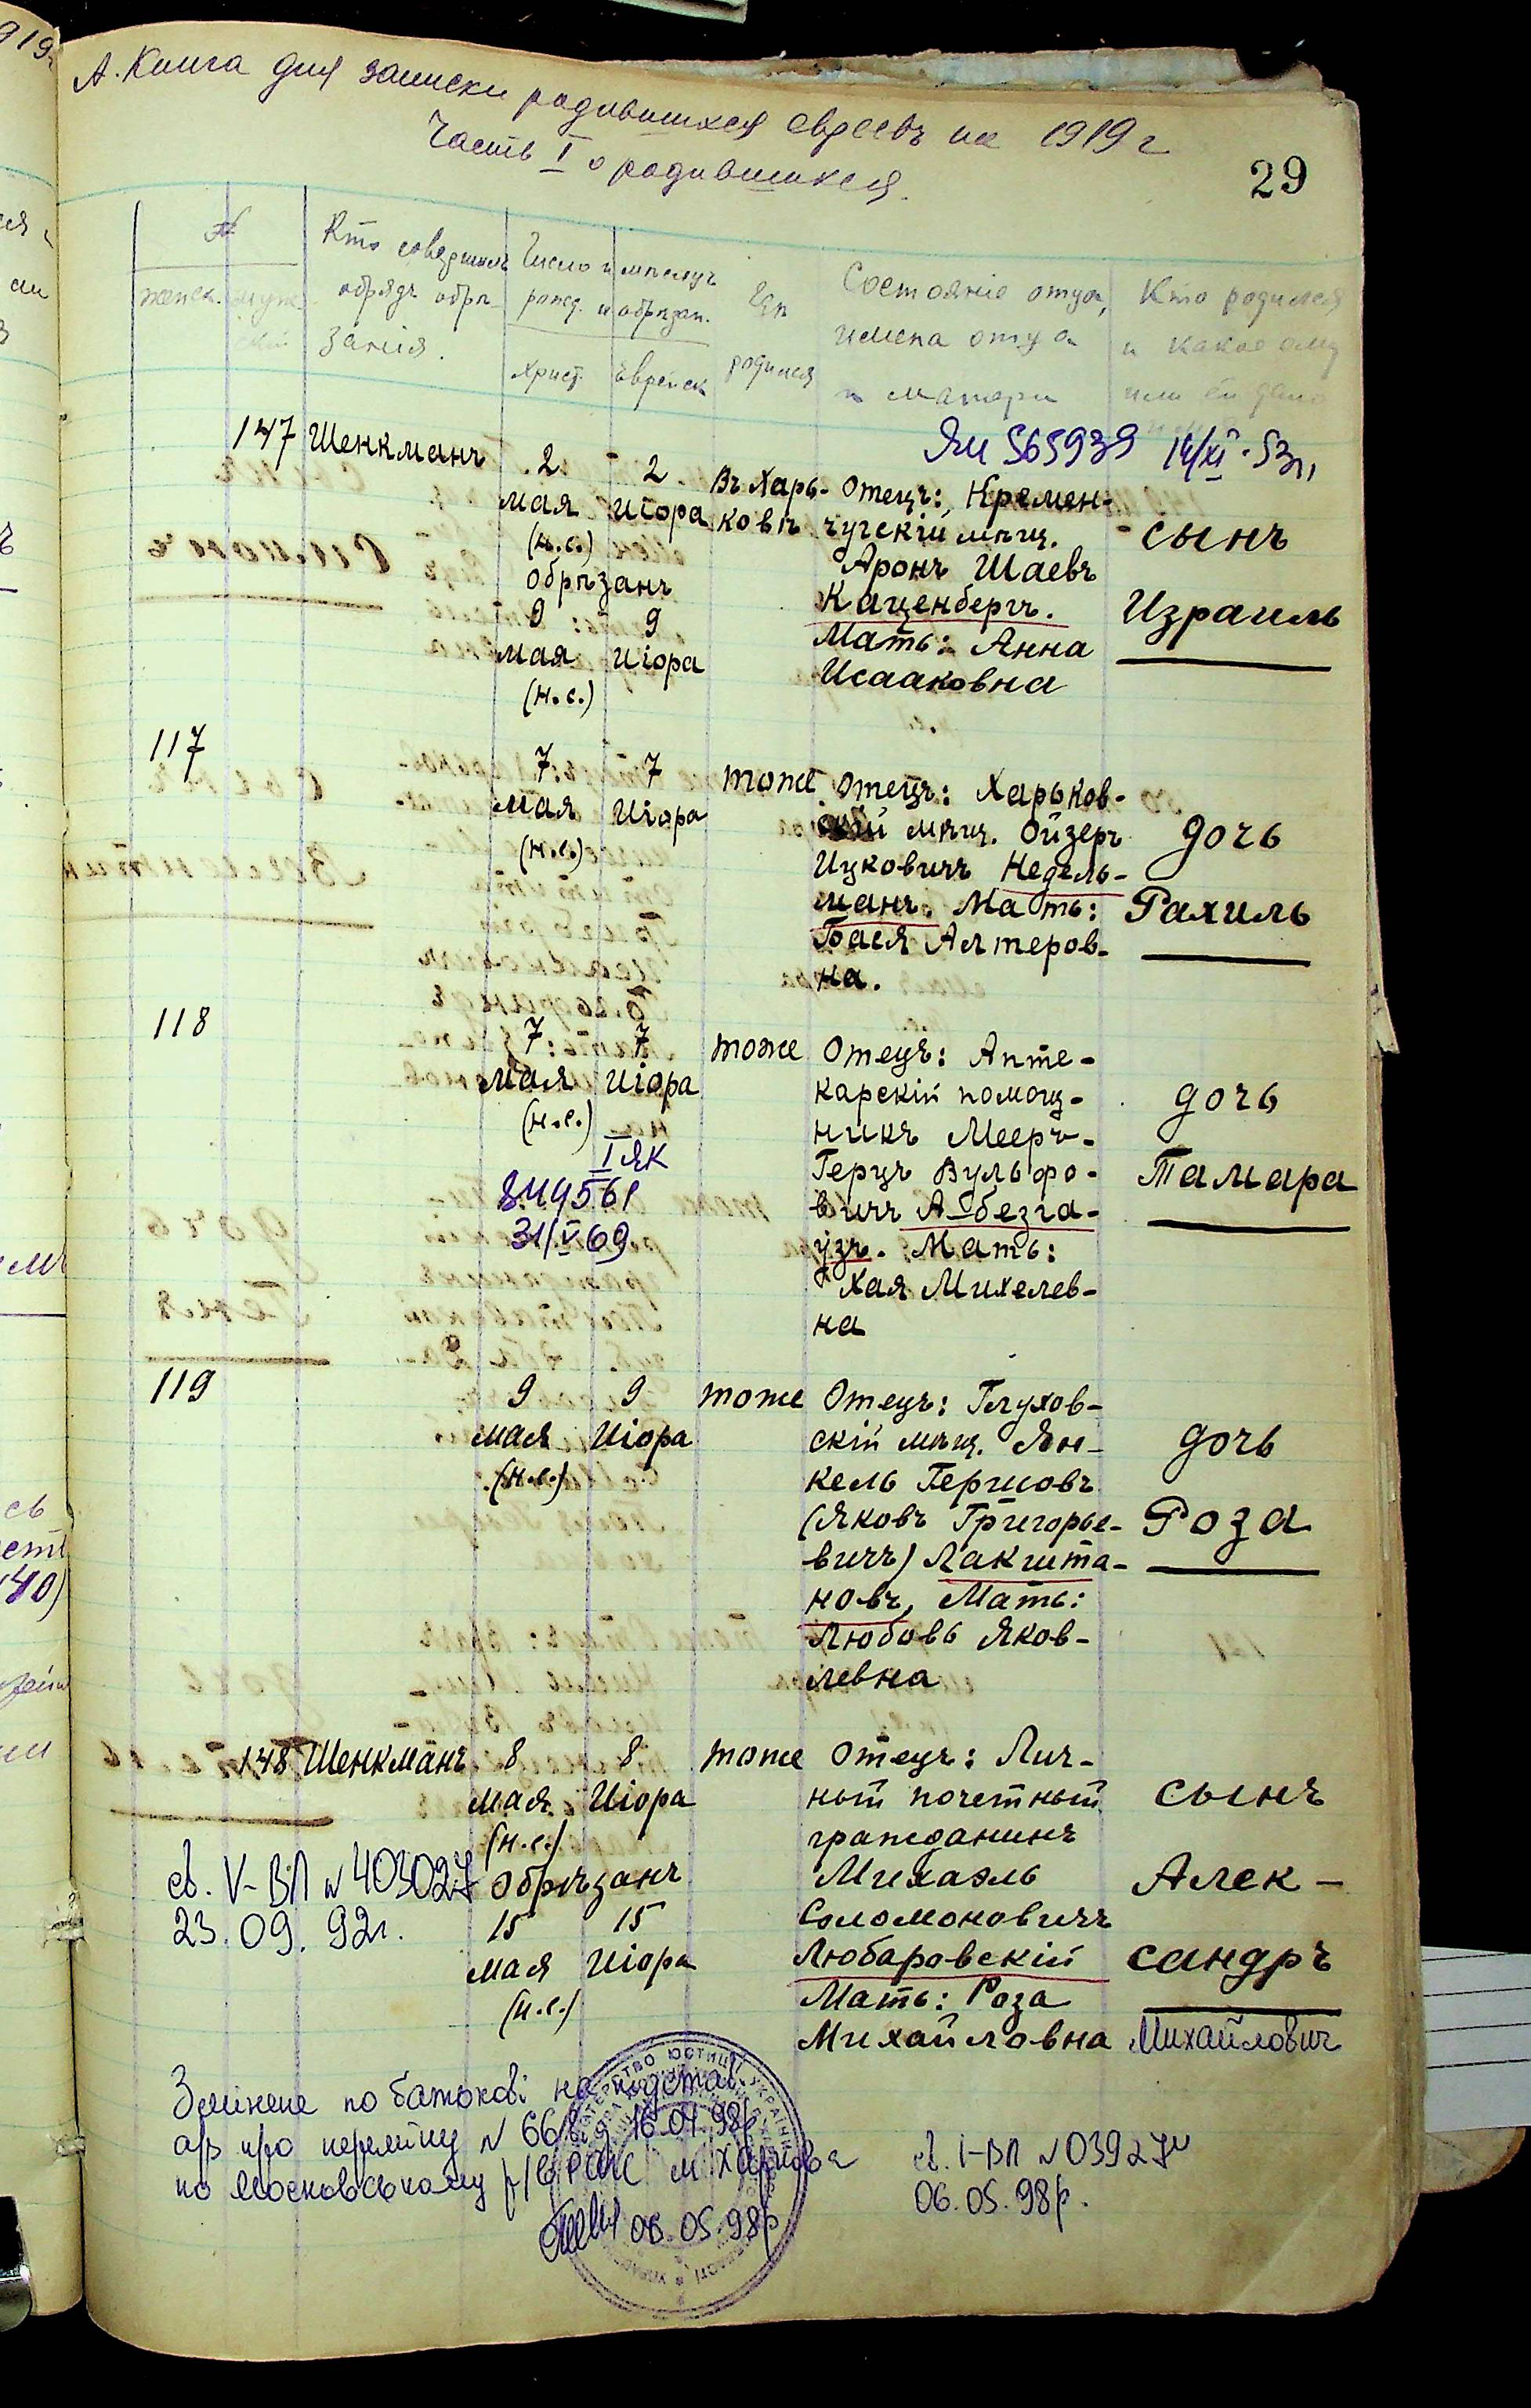 А. Книга для записки родившихся евреевъ на 1919 г
Часть I о родившихся.
29
№
женск. муж-
ской
Кто совершилъ
обрядъ обрѣ-
занія.
Число и мѣсяцъ
рожд. и обрѣзан.
Христ. Еврейск
Гдѣ
родился
Состояніе отца,
имена отца
и матери
Кто родился
и какое ему
или ей дано
147 Шенкманъ
2 2
мая Иіора
(н.с.)
Обрѣзанъ
9 9
мая Иіора
(н.с.)
Въ Харь-
ковѣ
ЯИ 565939 14/XI 53г,
Отецъ: Кремен-
чугскій мѣщ.
Аронъ Шаевъ
Каценбергъ.
Мать: Анна
Исааковна
сынъ
Израиль
117
7 7
мая Иіора
(н.с.)
тоже
Отецъ: Харьков-
скій мѣщ. Ойзеръ
Ицковичъ Недель-
манъ. Мать:
Бася Алтеров-
на.
дочь
Рахиль
118
7 7
мая Иіора
(н.с.)
I ЯК
849561
31/V 69
тоже
Отецъ: Апте-
карскій помощ-
никъ Мееръ-
Герцъ Вульфо-
вичъ Абезга-
узъ. Мать:
Хая Михелев-
на
дочь
Тамара
119
9 9
мая Иіора
(н.с.)
тоже
Отецъ: Глухов-
скій мѣщ. Ян-
кель Гершовъ
(Яковъ Григорье-
вичъ) Лакшта-
новъ, Мать:
Любовь Яков-
левна
дочь
Роза
148 Шенкманъ
8 8
мая Иіора
(н.с.)
Обрѣзанъ
15 15
мая Иіора
(н.с.)
св. V-ВЛ № 403027
23.09.92г.
тоже
Отецъ: Лич-
ный почетный
гражданинъ
Михаэль
Соломоновичъ
Любаровскій
Мать: Роза
Михайловна
сынъ
Алек-
сандръ
Михайлович
Змінене по батькові на підставі
а/з про переміну № 668 16.04.98р
по Московському р/в РАГС м. Харкова
06.05.98р
св. I-ВЛ № 03927
06.05.98р.